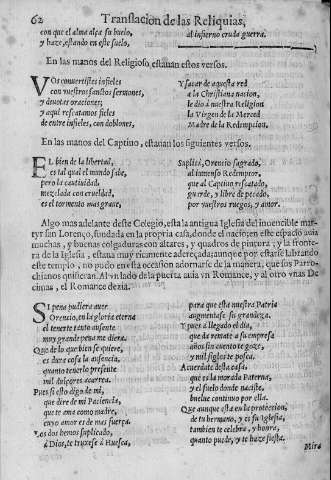 62 Translacion de las Reliquias,
con que el alma alça su buelo,
y haze, estando en este suelo,
al infierno cruda guerra.
En las manos del Religioso, estauan estos versos.
VOs conuertistes infieles
con vuestros santos sermones,
y deuotas oraciones;
y aqui rescatamos fieles
de entre infieles, con doblones,
Y sacar de aquesta red
a la Christiana nacion,
le dió á nuestra Religion
la Virgen de la Merced
Madre de la Redempcion.
En las manos del Captiuo, estauan los siguientes versos.
EL bien de la libertad,
es tal qual el mundo sabe,
pero la cautiuidad
mezclada con crueldad,
es el tormento mas graue,
Suplicá, Orencio sagrado,
al inmenso Redemptor,
que al Captiuo rescatado,
guarde, y libre de pecado,
por vuestros ruegos, y amor.
Algo mas adelante deste Colegio, está la antigua Iglesia del inuencible mar-
tyr san Lorenço, fundada en la propria casa, donde el nacio; en este espacio auia
muchas, y buenas colgaduras con altares, y quadros de pintura; y la fronte-
ra de la Iglesia, estaua muy ricamente adereçada; aunque por estarse labrando
este templo, no pudo en esta ocasion adornarse de la manera, que sus Parro-
chianos quisieran. Al vn lado de la puerta auia vn Romance, y al otro vnas De
cimas, el Romance dezia.
SI pena pudiera auer
Orencio, en la gloria eterna
el tenerte tanto ausente
muy grande pena me diera
Que de lo que bien se quiere,
es dura cosa la ausencia,
quanto tenerlo presente
mil dulçores acarrea.
Pues si esto digo de mi,
que dire de mi Paciencia,
que te ama como madre,
cuyo amor es de mas fuerça.
Los dos hemos suplicado,
á Dios, te truxesse á Huesca,
para que esta nuestra Patria
augmentasse su grandeza.
Y pues á llegado el dia,
que da remate a su empresa
años sin cuento te goze,
y mil siglos te posea.
Acuerdate desta casa,
que es la morada Paterna,
y el suelo donde naciste,
buelue continuo por ella.
Que aunque esta en la proteccion,
de tu hermano, y es su Iglesia,
tambien te celebra, y honra,
quanto puede, y te haze fiesta.
Mira